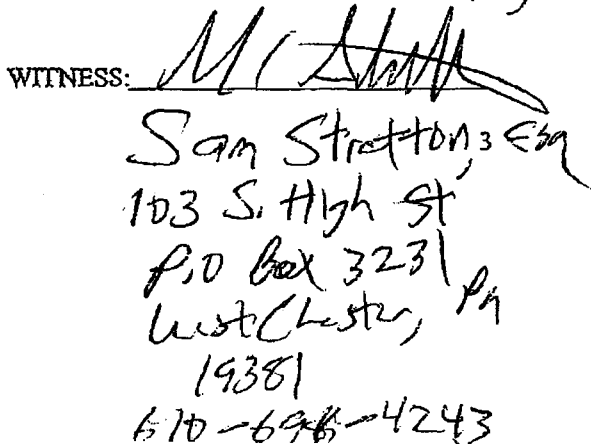 WITNESS:
Sam Stretton, Esq
103 S. High St
P.O Box 3231
West Chester, Pa
19381
610-696-4243